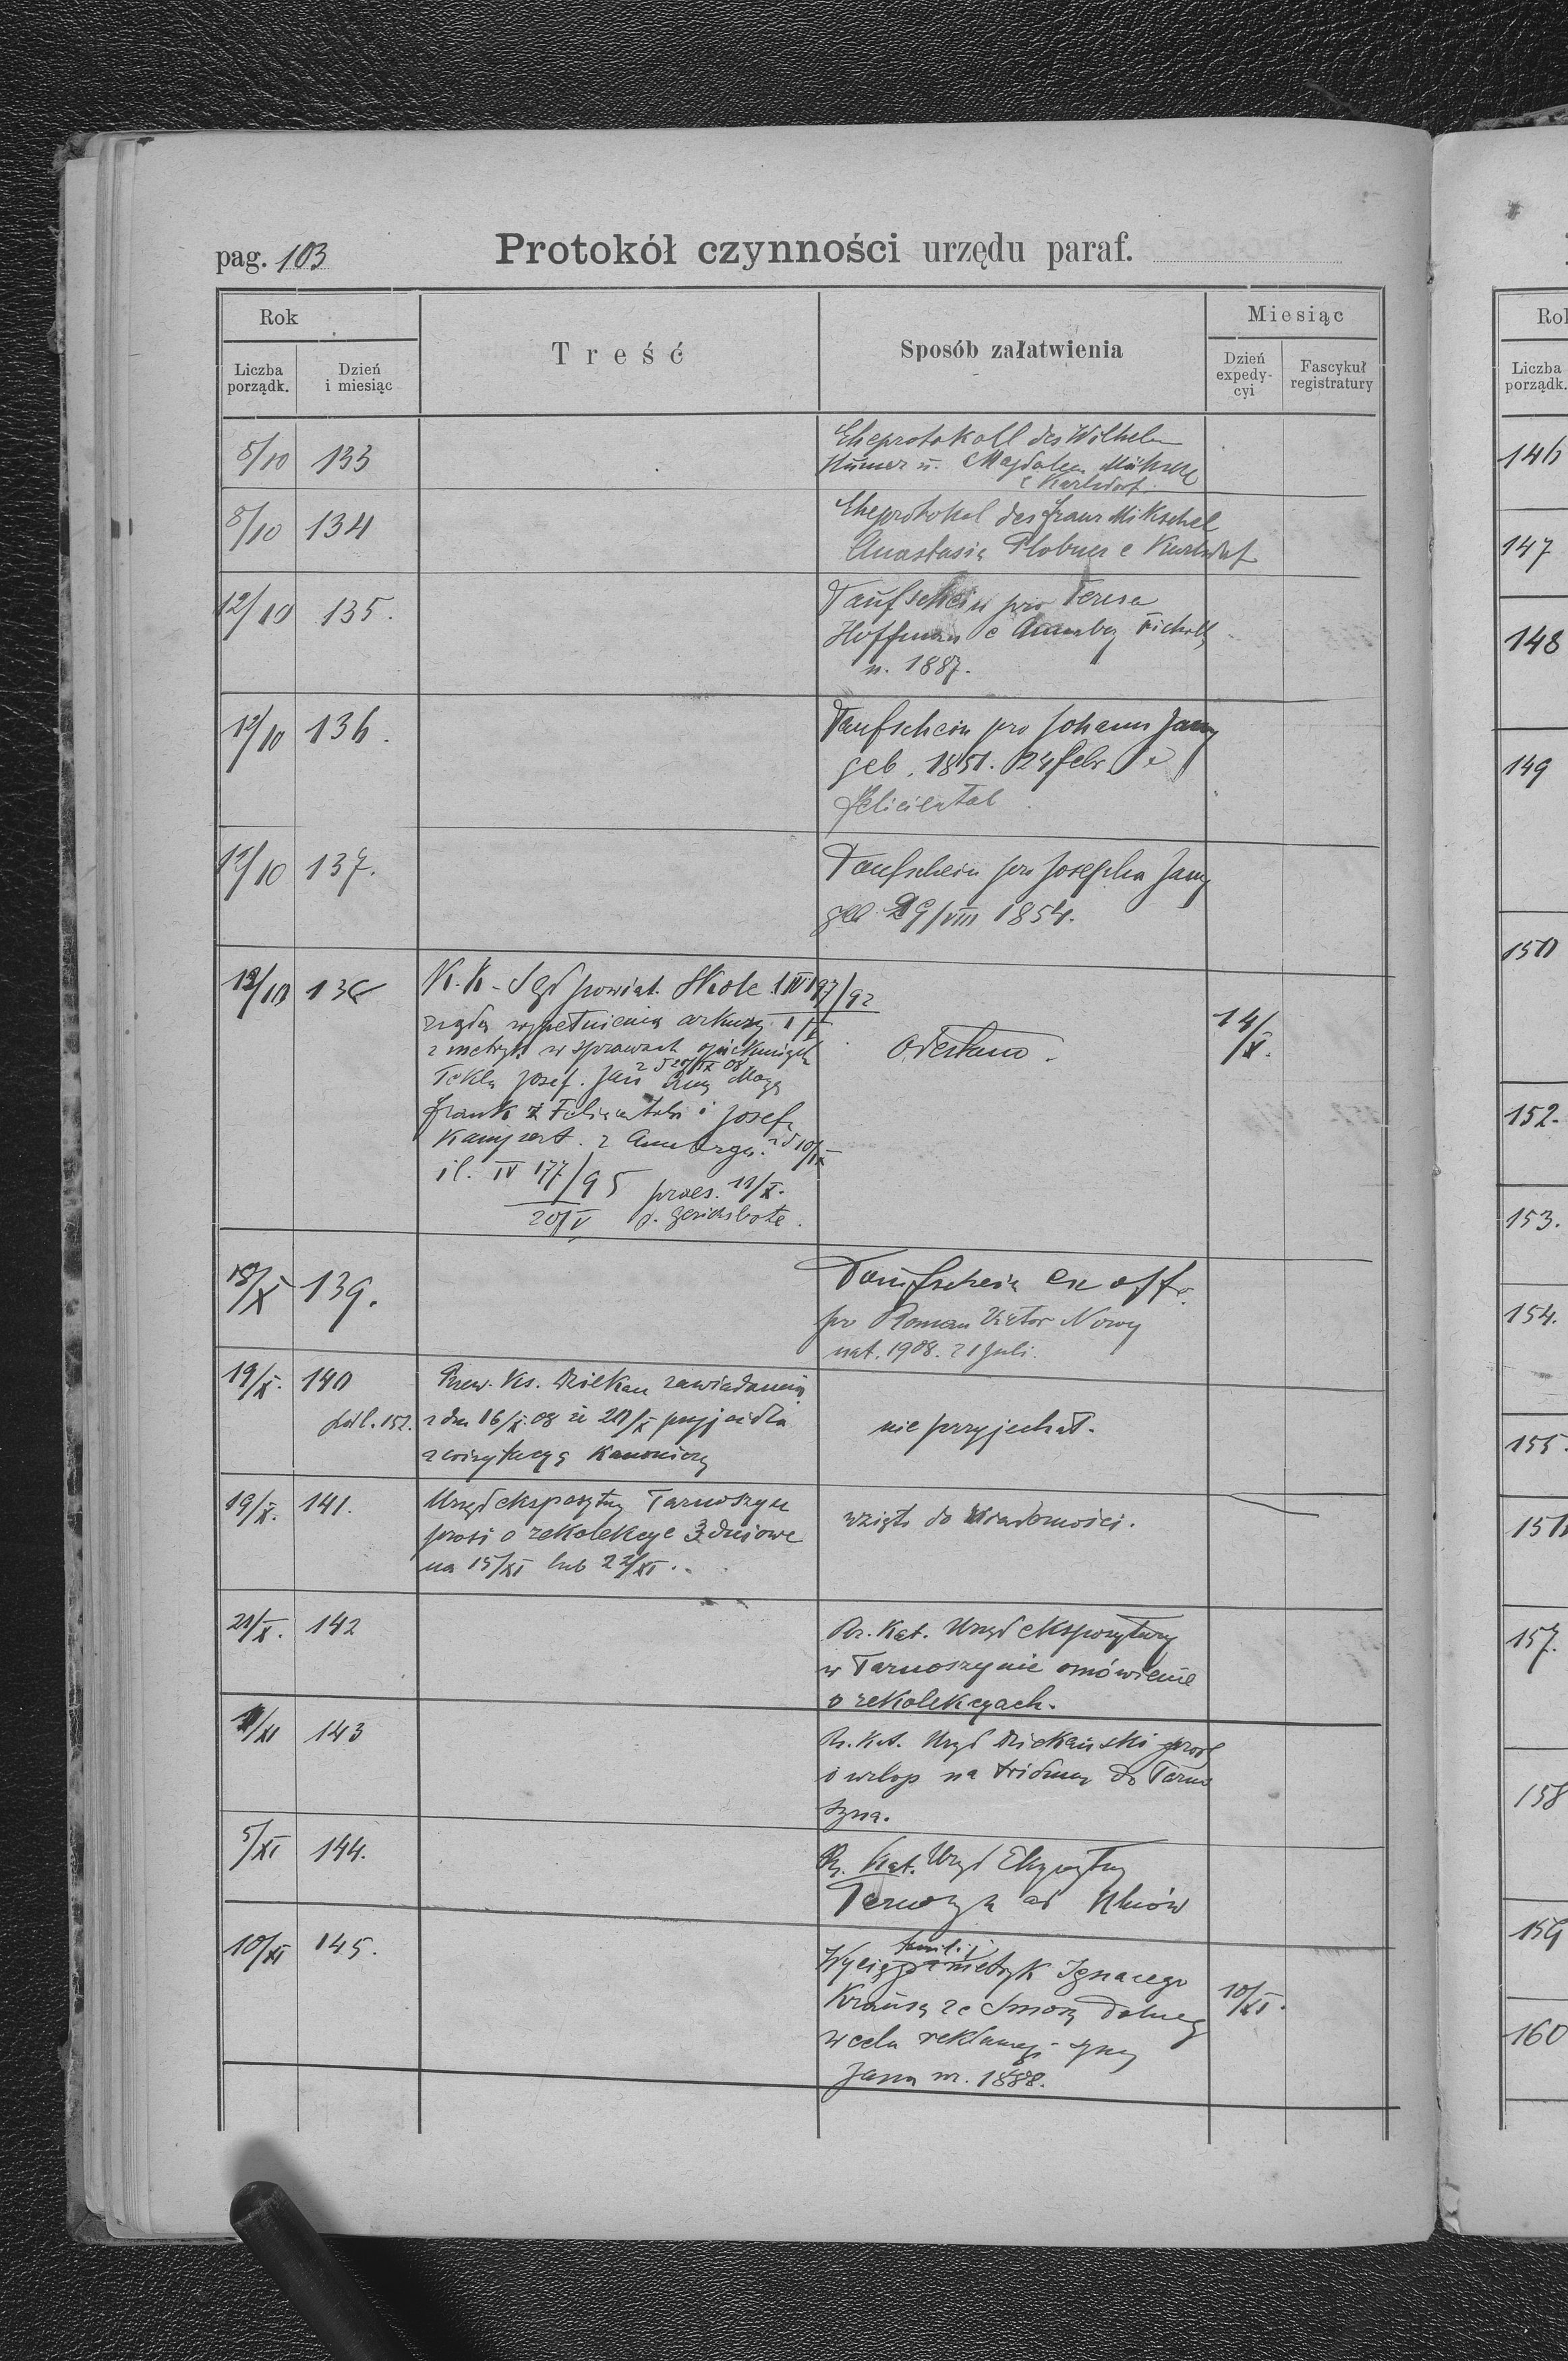 pag. 103
Protokół czynności urzędu paraf.
Rok
Treść
Sposób załatwienia
Miesiąc
Liczba porządk.
Dzień i miesiąc
Dzień expedy-cyi
Fascykuł registratury
8/10 133
Eheprotokoll des Wilhelm
u. Magdalena
e Karlsdorf.
8/10 134
Eheprotokol des Franz Mikschel
Anastasia e Karlsdorf
12/10 135.
Taufschein pro Teresa
Hoffman e Annaberg
n. 1887.
12/10 136.
Taufschein pro Johann
geb. 1851. 24 febr. e
Felicienthal
12/10 137.
Taufschein pro Josepha
geb. 29/VIII 1854.
12/10 138
K.K. Sąd powiat. Skole IV 197/92
żąda wypełnienia arkuszy
z metryk w sprawach opiekuńczych
Tekla Josef. Jan
Frank z i Josefa
Kampert. z
il. IV 177/95 praes. 11/X.
20/V p. Gerichsbote.
odesłano.
14/X.
18/X 139.
Taufschein ex offo.
pro Roman Victor Nowy
nat. 1908. 21 Juli.
19/X. 140
Przew. Ks. Dziekan zawiadamia
ad l. 152. z dn 16/X 08 że 20/X przyjeżdża
z wizytacyą kanoniczą
nie przyjechał.
19/X. 141.
Urząd ekspozytury Tarnoszyn
prosi o rekolekcye 3 dniowe
na 15/XI lub 22/XI.
wzięto do wiadomości.
21/X. 142
Rz. Kat. Urząd ekspozytury
w Tarnoszynie omówienie
o rekolekcyach.
1/XI 143
Rz. Kat. Urząd Dziekański
o urlop na triduum do Tarno
szyna.
5/XI 144.
Rz. Kat. Urząd Ekspozytury
Tarnoszyn ad Uhnów
10/XI 145.
familij.
Wyciąg z metryk Ignacego
Krausa ze Smorza dolnego
w celu reklamacyi syna
Jana ur. 1888.
10/XI.
Rok
Liczba porządk.
146
147
148
149
150
152.
153.
154.
155.
157.
158
159
160